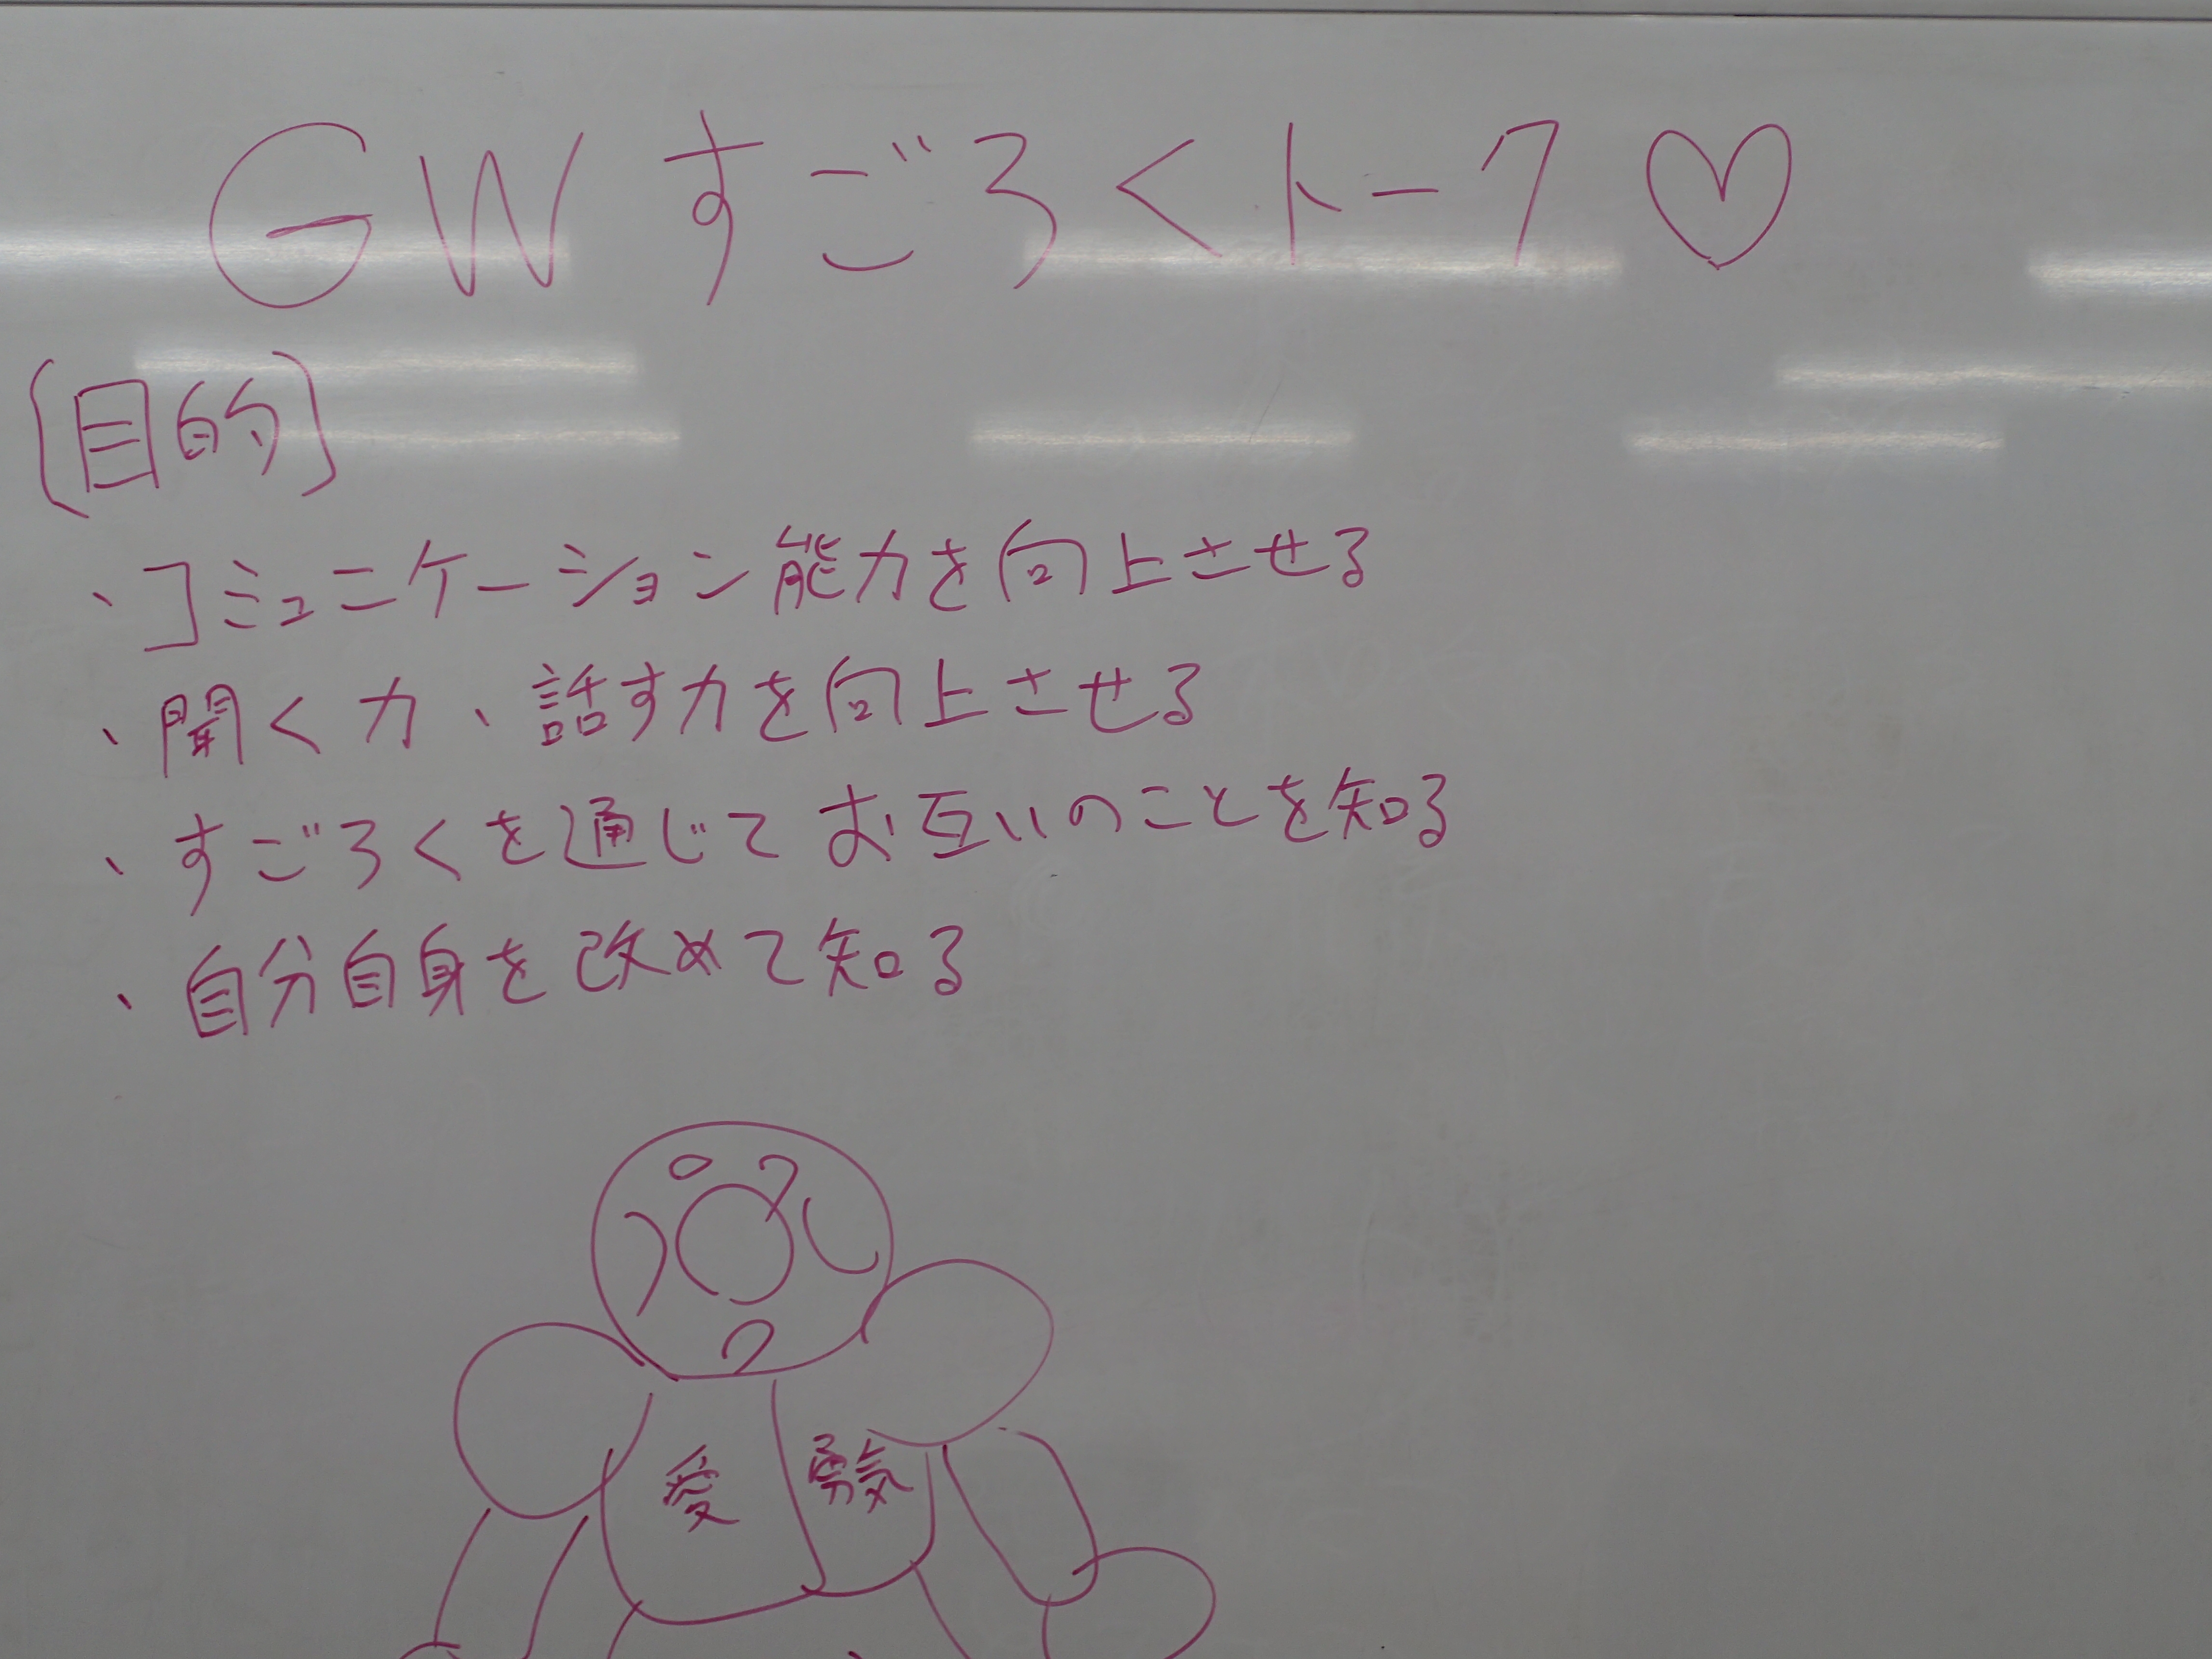 GW すごろくトーク♡
[目的]
・コミュニケーション能力を向上させる
・聞く力、話す力を向上させる
・すごろくを通じてお互いのことを知る
・自分自身を改めて知る
愛 勇気